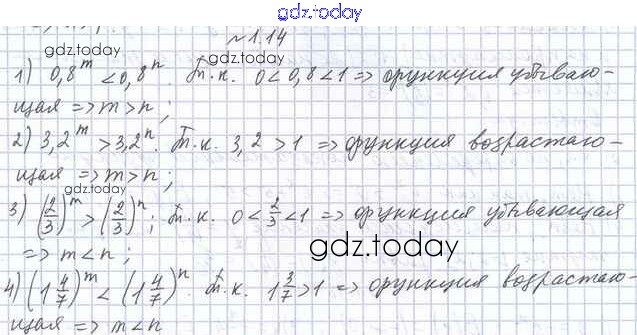 gdz.today
№1.14
gdz.today gdz.today
1) 0,8^m < 0,8^n. Т.к. 0 < 0,8 < 1 => функция убываю-
щая => m > n;
2) 3,2^m > 3,2^n. Т.к. 3,2 > 1 => функция возрастаю-
щая => m > n;
gdz.today
3) (2/3)^m > (2/3)^n; Т.к. 0 < 2/3 < 1 => функция убывающая
=> m < n;
gdz.today
4) (1 4/7)^m < (1 4/7)^n. Т.к. 1 3/7 > 1 => функция возрастаю-
щая => m < n